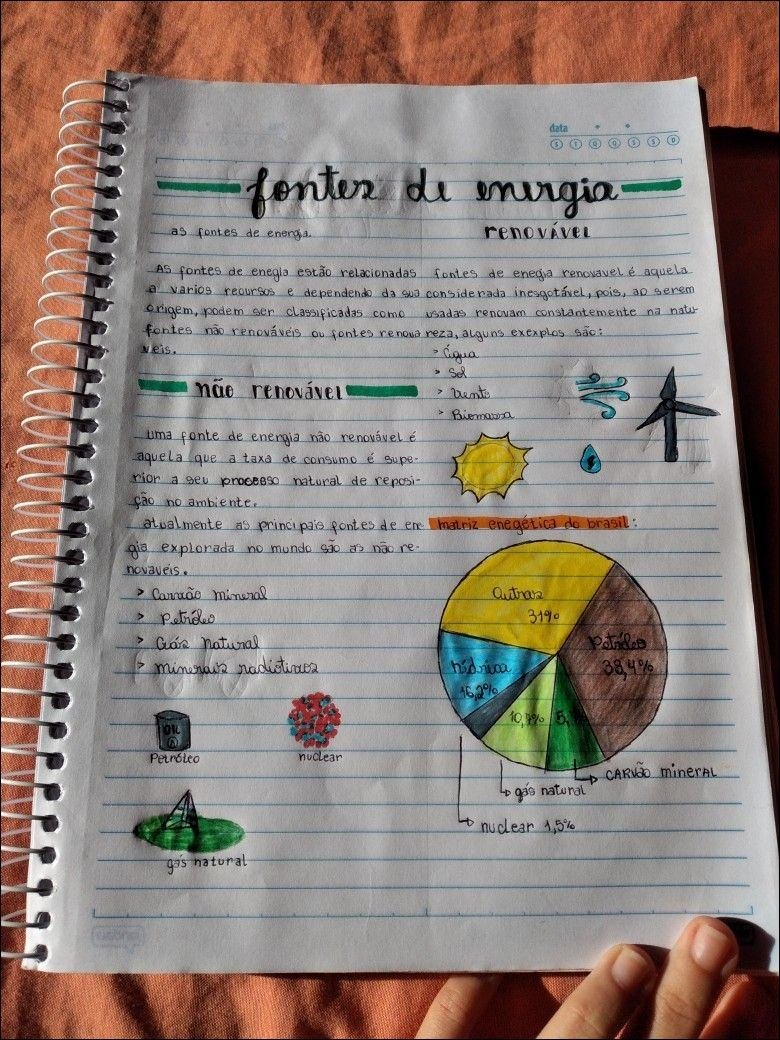 data
S T Q Q S S D
fontes de energia
as fontes de energia.
As fontes de enegia estão relacionadas
a varios recursos e dependendo da sua
origem, podem ser classificadas como
fontes não renováveis ou fontes renova
veis.
não renovável
uma fonte de energia não renovável é
aquela que a taxa de consumo é supe-
rior a seu processo natural de reposi-
ção no ambiente.
atualmente as principais fontes de ener
gia explorada no mundo são as não re-
novaveis.
> Carvão mineral
> Petróleo
> Gás natural
> minerais radiotivos
OIL
Petróleo
nuclear
gás natural
renovável
fontes de enegia renovavel é aquela
considerada inesgotável, pois, ao serem
usadas renovam constantemente na natu-
reza, alguns exexplos são:
> água
> Sol
> Vento
> Biomassa
matriz enegética do brasil:
Outras
31%
Petróleo
38,4%
hídrica
16,2%
10,7%
gás natural
CARVÃO mineral
nuclear 1,5%